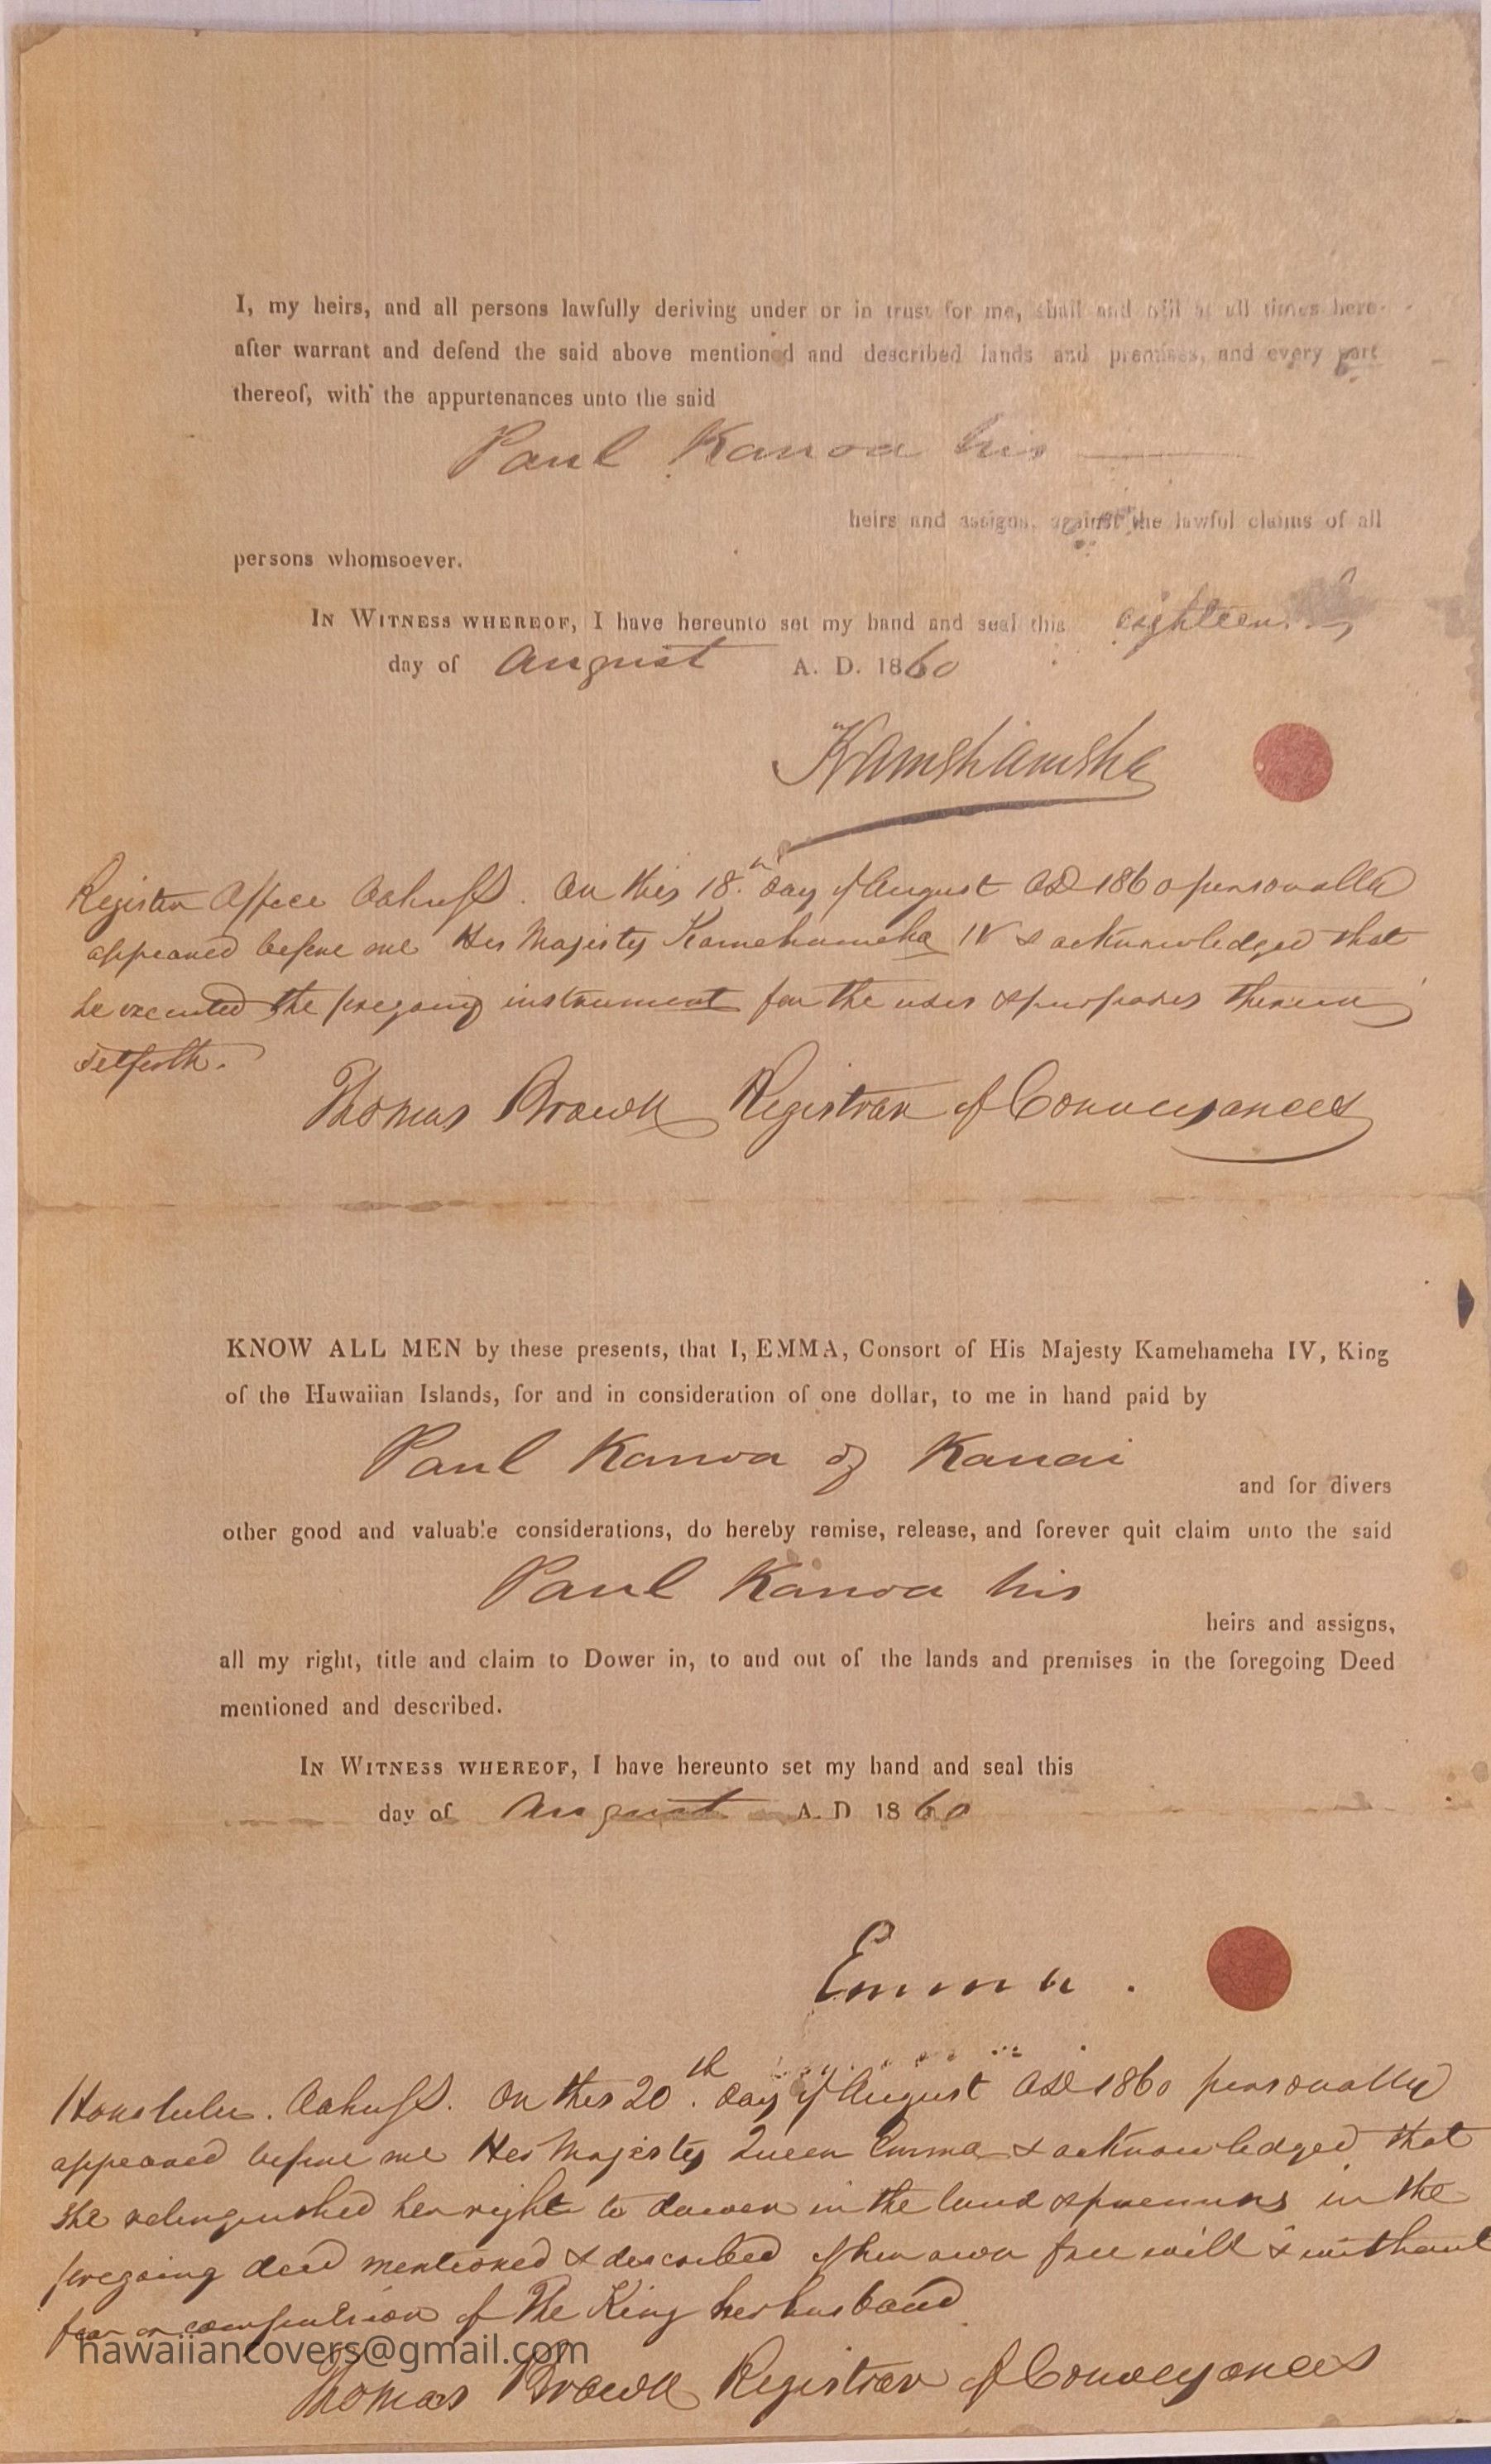 I, my heirs, and all persons lawfully deriving under or in trust for me, shall and will at all times here-
after warrant and defend the said above mentioned and described lands and premises, and every part
thereof, with the appurtenances unto the said
Paul Kanoa his
heirs and assigns, against the lawful claims of all
persons whomsoever.
IN WITNESS WHEREOF, I have hereunto set my hand and seal this eighteenth
day of August A. D. 1860
Kamehameha
Register Office Oahu SS. On this 18th day of August AD 1860 personally
appeared before me His Majesty Kamehameha IV & acknowledged that
he executed the foregoing instrument for the uses & purposes therein
setforth.
Thomas Brown Registrar of Conveyances
KNOW ALL MEN by these presents, that I, EMMA, Consort of His Majesty Kamehameha IV, King
of the Hawaiian Islands, for and in consideration of one dollar, to me in hand paid by
Paul Kanoa of Kauai
and for divers
other good and valuable considerations, do hereby remise, release, and forever quit claim unto the said
Paul Kanoa his
heirs and assigns,
all my right, title and claim to Dower in, to and out of the lands and premises in the foregoing Deed
mentioned and described.
IN WITNESS WHEREOF, I have hereunto set my hand and seal this
day of August A. D 1860
Emma.
Honolulu. Oahu SS. On this 20th. day of August AD 1860 personally
appeared before me Her Majesty Queen Emma & acknowledged that
she relinquished her right to dower in the land & premises in the
foregoing deed mentioned & described of her own free will & without
fear or compulsion of The King her husband
hawaiiancovers@gmail.com
Thomas Brown Registrar of Conveyances